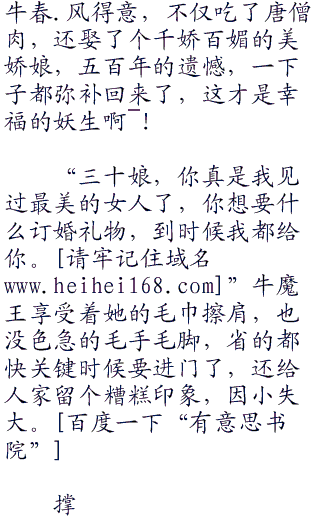 牛春.风得意，不仅吃了唐僧
肉，还娶了个千娇百媚的美
娇娘，五百年的遗憾，一下
子都弥补回来了，这才是幸
福的妖生啊¯！
“三十娘，你真是我见
过最美的女人了，你想要什
么订婚礼物，到时候我都给
你。[请牢记住域名
www.heihei168.com]”牛魔
王享受着她的毛巾擦肩，也
没色急的毛手毛脚，省的都
快关键时候要进门了，还给
人家留个糟糕印象，因小失
大。[百度一下“有意思书
院”]
撑